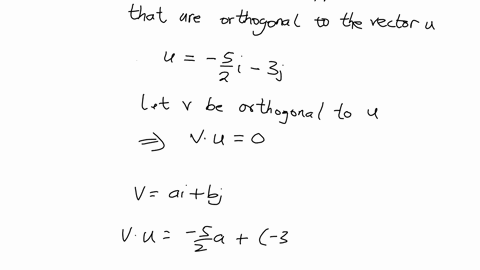 that are orthogonal to the vector u
u = -5/2 i - 3j
Let v be orthogonal to u
⇒ v·u = 0
v = ai + bj
v·u = -5/2 a + (-3